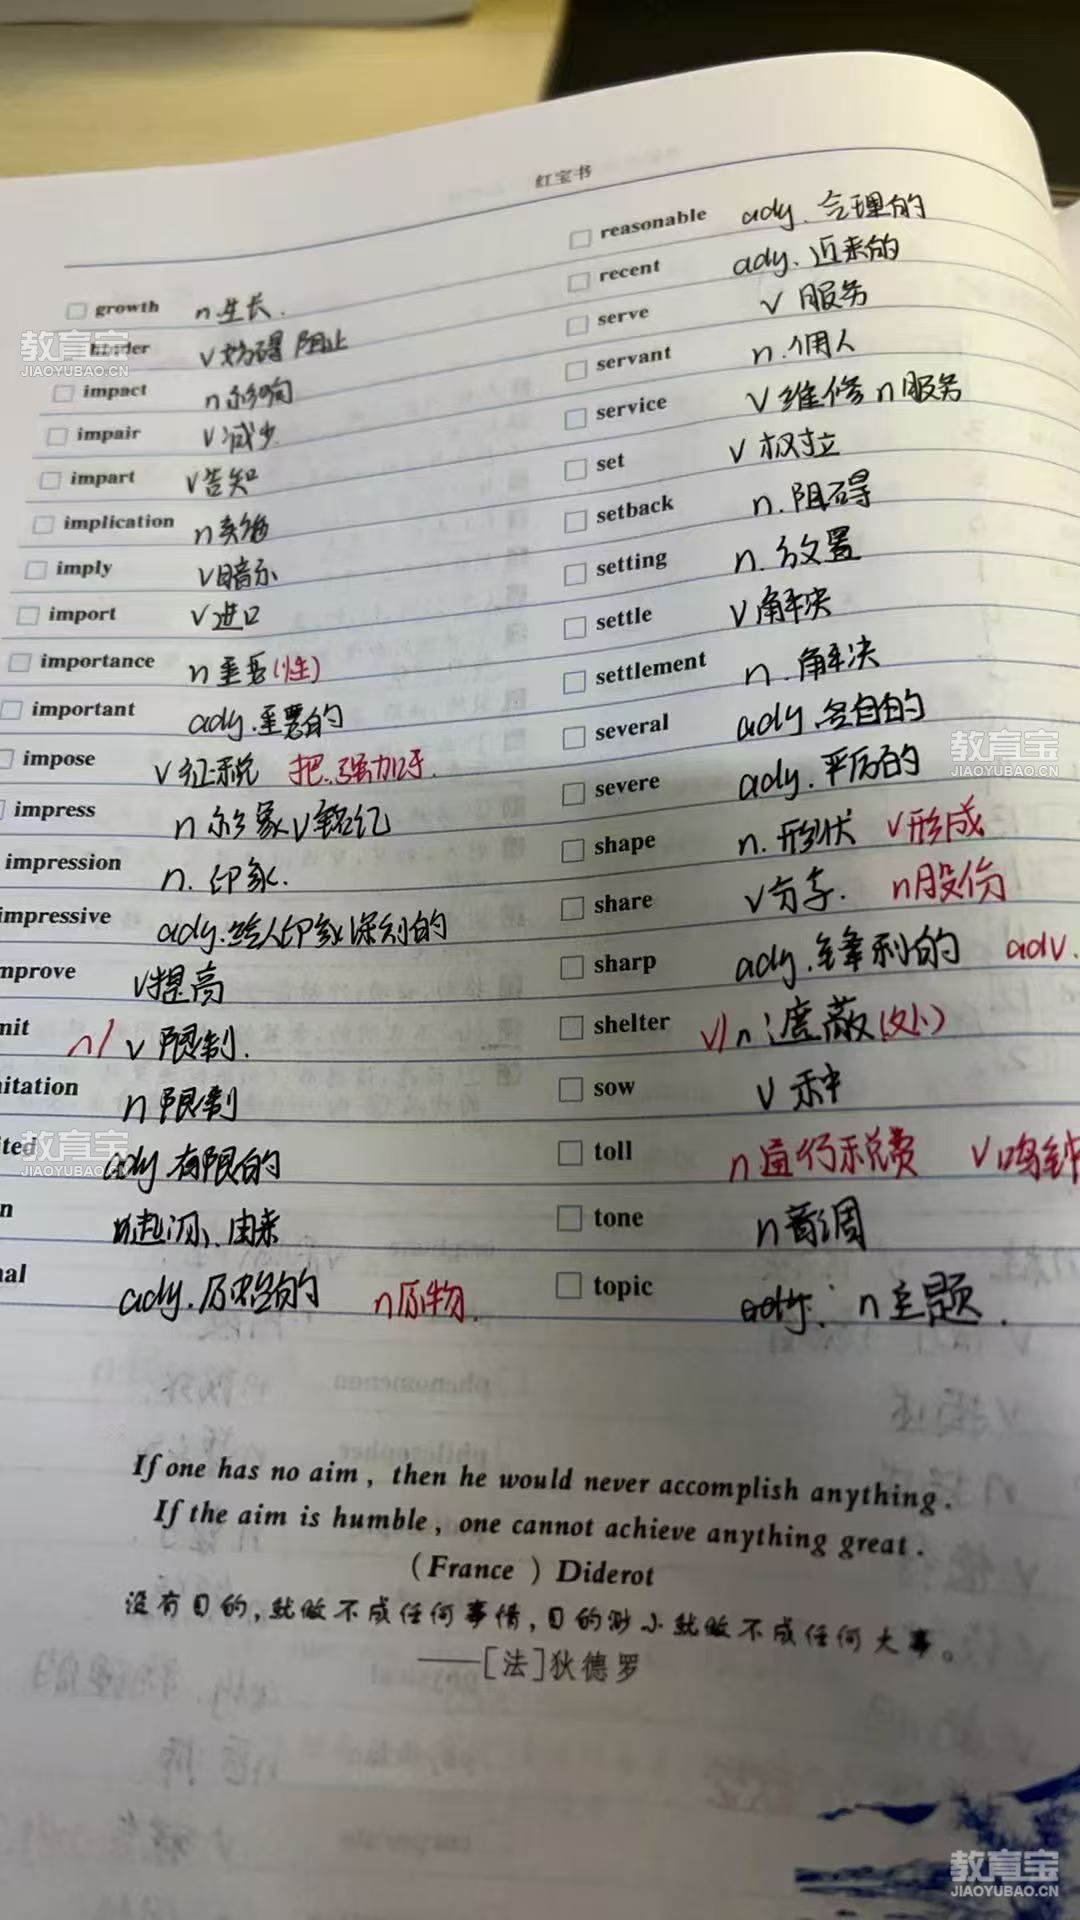 红宝书
growth n.生长.
hinder v妨碍 阻止
impact n影响
impair v减少
impart v告知
implication n
imply v暗示
import v进口
importance n重要(性)
important adj.重要的
impose v征税 把..强加于.
impress n 印象 v铭记
impression n. 印象.
impressive adj.给人印象深刻的
mprove v提高
mit n/ v 限制.
itation n 限制
ited adj 有限的
n 起源、由来
nal adj.原始的 n原物.
reasonable adj. 合理的
recent adj. 近来的
serve v 服务
servant n. 佣人
service v 维修 n服务
set v 树立
setback n. 阻碍
setting n. 放置
settle v 解决
settlement n. 解决
several adj 各自的
severe adj. 严厉的
shape n. 形状 v形成
share v分享. n股份
sharp adj.锋利的 adv.
shelter v/ n 遮蔽(处)
sow v 种
toll n通行税费 v鸣钟
tone n音调
topic adj. n主题.
If one has no aim, then he would never accomplish anything.
If the aim is humble, one cannot achieve anything great.
(France) Diderot
没有目的,就做不成任何事情,目的渺小就做不成任何大事。
——[法]狄德罗
phenomenon
philosopher
physical
教育宝
JIAOYUBAO.CN
教育宝
JIAOYUBAO.CN
教育宝
JIAOYUBAO.CN
教育宝
JIAOYUBAO.CN